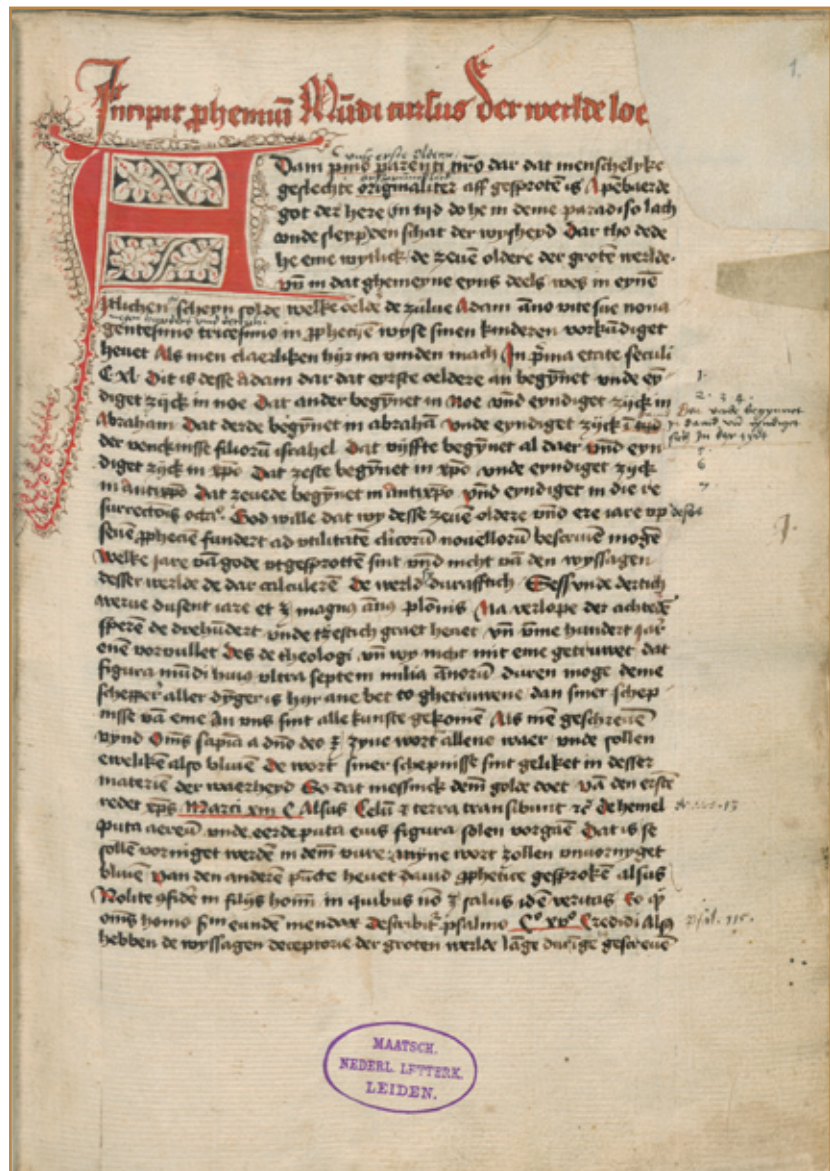 1.
Incipit phemiū Mūdi cursus Der werlde loe
Adam pmo parenti nro dar dat menschelyke
geslechte originaliter aff gesprotē is Apēbaerde
got der here in tijd do he in deme paradiso lach
vnde sleyp den schat der wysheyd Dar tho dede
he eme wytlick de zeuē oldere der grotē werlde.
vn̄ in dat ghemeyne eyns deels wes in eynē
itlichen scheyn solde welke oelde de zulue Adam āno vite sue nona
gentesimo tricesimo in pphecien wyse sinen kinderen vorkūdiget
heuet Als men claerliken hijr na vinden mach In p̄ma etate seculi
C xl Dit is desse Adam dar dat eyrste oeldere an begȳnet vnde ey
diget zijck in noe Dat ander begȳnet in Noe vnd eyndiget zijck in
Abraham Dat derde begȳnet in abrahā vnde eyndiget zijck ī tijd
der vencknisse filiorū israhel Dat vijffte begȳnet al daer vn̄d eyn
diget zijck in xp̄o Dat zeste begȳnet in xp̄o vnde eyndiget zijck
in antixp̄o Dat zeuede begȳnet in antixp̄o vn̄d eyndiget in die re
surrectōis God wille dat wy desse zeuē oldere vn̄d ere iare vp desse
seuē pphecien fundert ad vtilitatē clicorū nouellorū bescriuē mogē
Welke jare vā gode vtgesprotten sint vn̄d nicht vā den wyssagen
desser werlde de dar calculerē De werld Sess vnde dertich
werue dusent iare et magnus ānus Na verlope der achtedē
sperē de drehūdert vnde tzestich graet heuet vn̄ vm̄e hundert jar
enē voruullet Des de theologi vn̄ wy nicht mit eme getruwet dat
figura mūdi huius vltra septem milia ānorū duren moge deme
scheppe aller dȳger is hijr ane bet to ghetruwene dan siner schep
nisse vā eme An vns sint alle kunste gekomē Als mē geschreuē
vynd Oms sapīa a dno deo Zyne wort allene waer vnde sollen
eweliken also bliuē De wort siner schepnisse sint geliket in desser
materiē der waerheyd So dat messinck dem golde doet vā den erstē
redet xp̄s Marci xiii C Alsus Celū terra transibunt De hemel
puta aereū vnde eerde puta eius figura solen vorgaē Dat is se
sollē vorniget werdē in dem vure myne wort zollen vnuornyget
bliuē Van den anderē pūcte heuet dauid pphetice gesprokē alsus
Nolite ꝯfidē in filijs homī in quibus nō salus idē veritas
oms homo eundē mendax psalmo Cº xvº Credidi
hebben de wyssagen deceptorie der groten werlde lāge durīge gescreuē
1.
2. 3. 4.
5
6
7
psal. 115.
MAATSCH.
NEDERL. LETTERK.
LEIDEN.